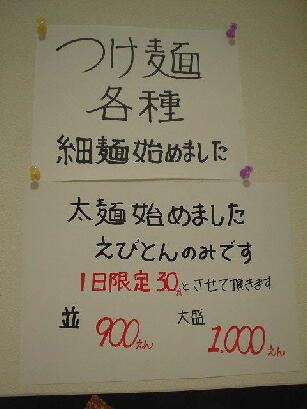 つけ麺
各種
細麺始めました
太麺始めました
えびとんのみです
1日限定30食とさせて頂きます
並 900えん 大盛 1.000えん